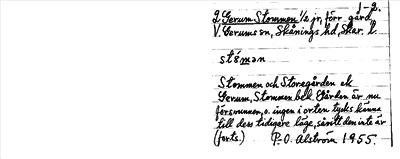 1-2.
2 Gerum Stommen ½ jr, förr gård
V. Gerums sn, Skånings hd, Skar. l.
stómən
Stommen och Storegården ek
Gerum, Stommen bel. Gården är nu
försvunnen, o. ingen i orten tycks känna
till dess tidigare läge, såvitt den inte är
(forts.) P.O. Alström 1955.